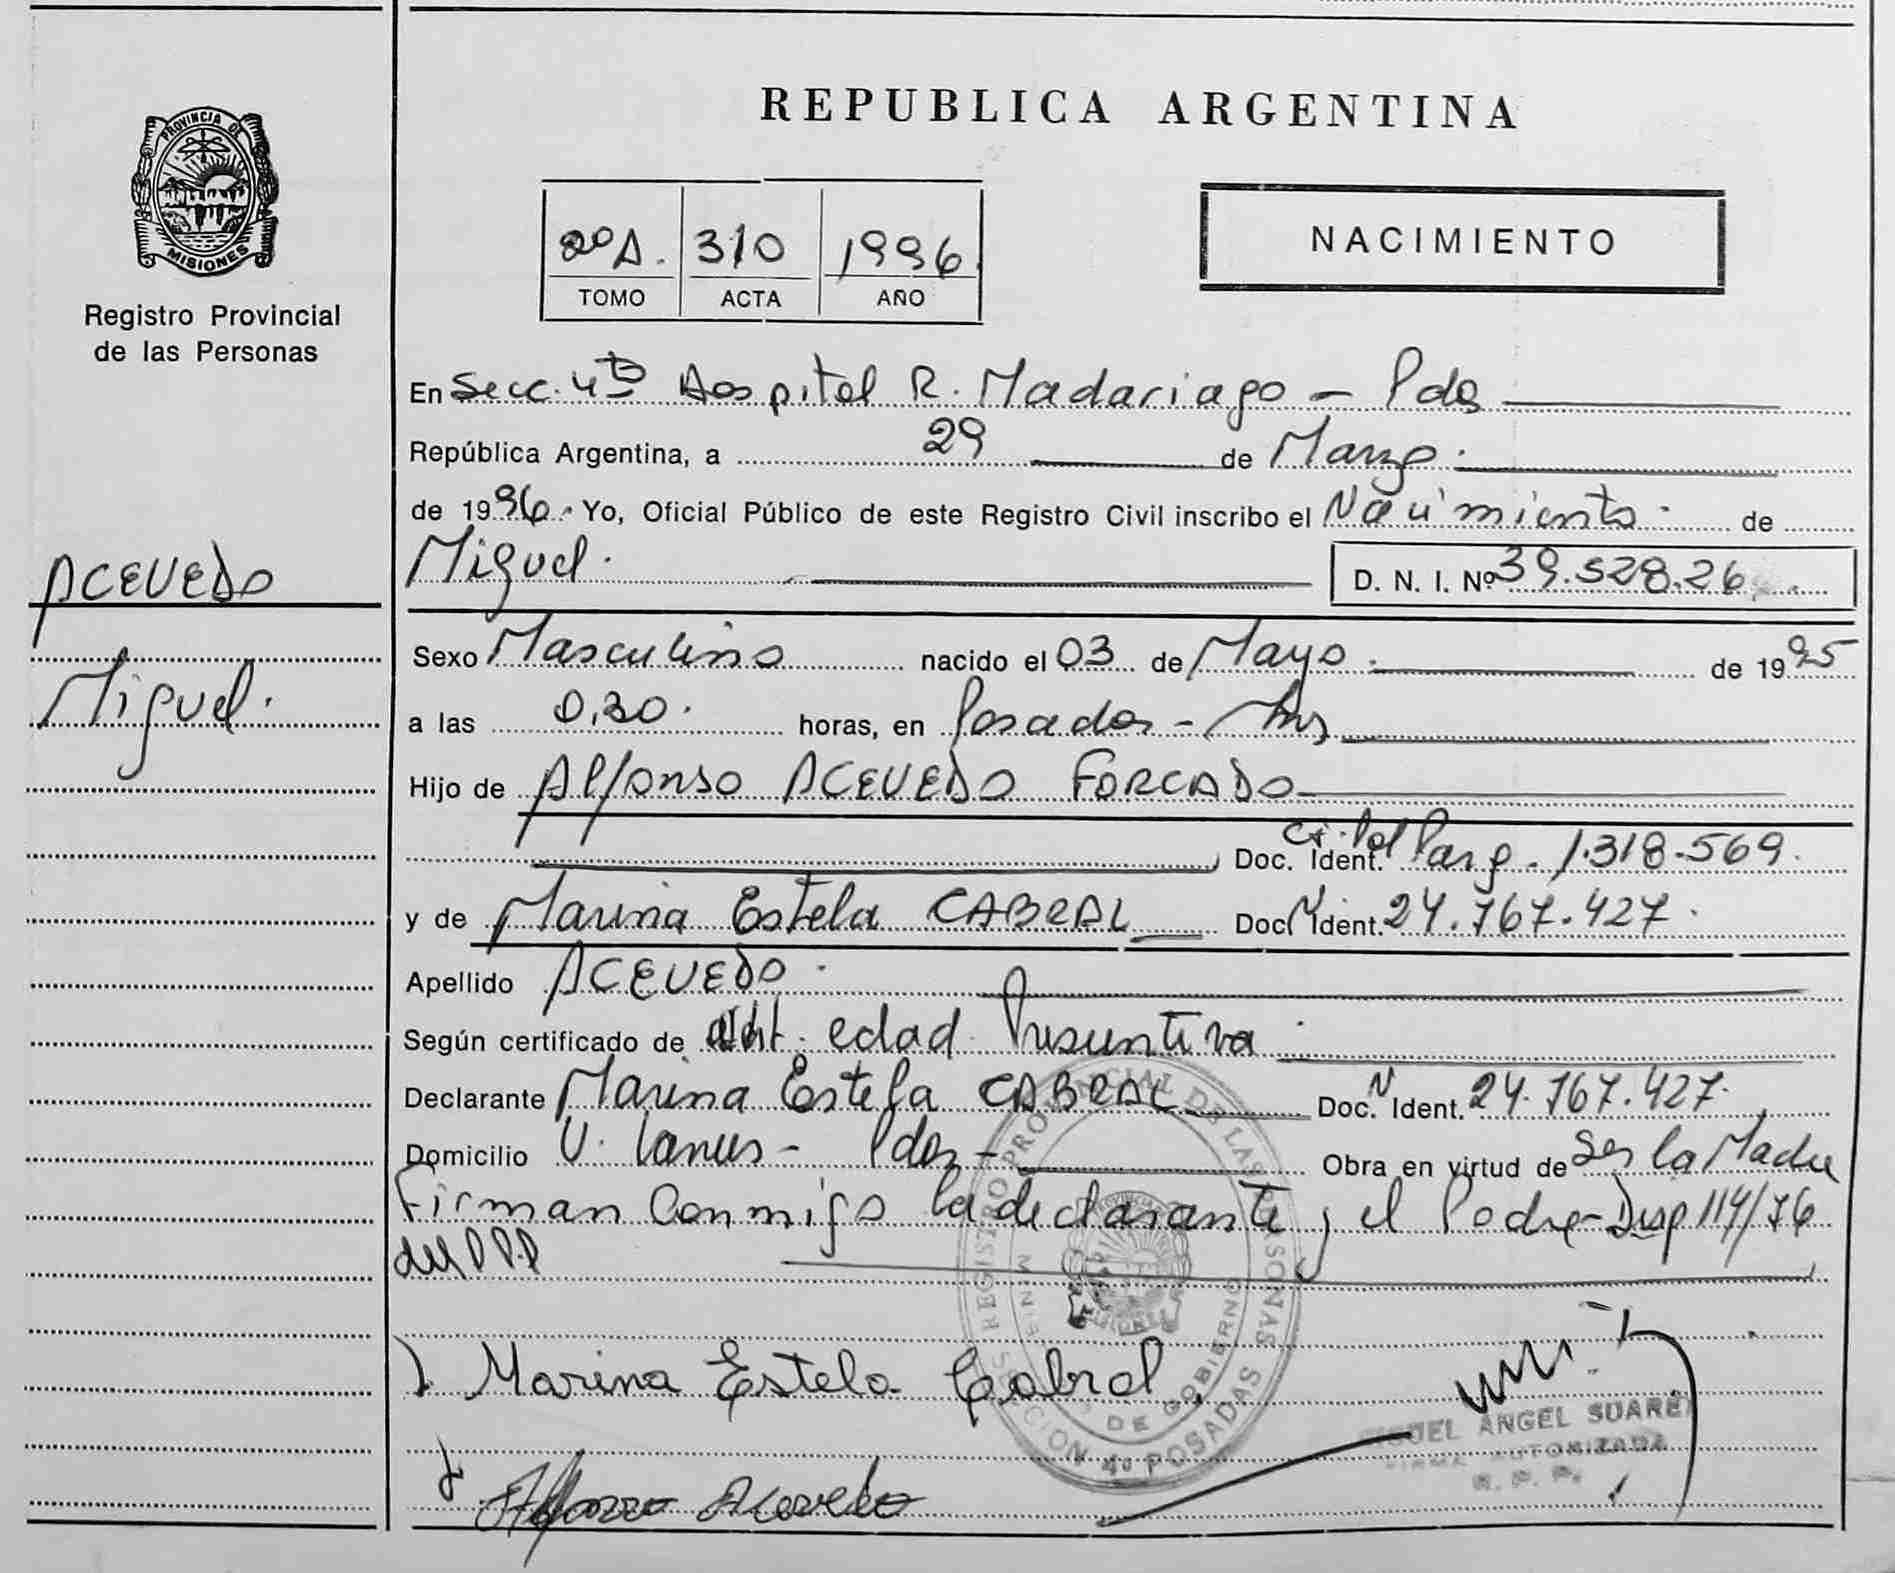 REPUBLICA ARGENTINA
PROVINCIA DE
MISIONES
Registro Provincial
de las Personas
2º A. 310 1996
TOMO ACTA AÑO
NACIMIENTO
En Secc. 4ta Hospital R. Madariaga - Pdas
República Argentina, a 29 de Marzo.
de 1996. Yo, Oficial Público de este Registro Civil inscribo el Nacimiento. de
Miguel. D. N. I. Nº 39.528.26
ACEVEDO
Miguel.
Sexo Masculino nacido el 03 de Mayo. de 1995
a las 0,30. horas, en Posadas - Mns
Hijo de Alfonso ACEVEDO FORCADO
Doc. Ident. Pol Parg. 1.318.569.
y de Marina Estela CABRAL Doc. Ident. 24.767.427.
Apellido ACEVEDO.
Según certificado de edad Presuntiva.
Declarante Marina Estela CABRAL Doc. Ident. 24.767.427.
Domicilio V. Lanus - Pdas - Obra en virtud de Ser la Madre
Firman Conmigo la declarante y el Padre - Disp 114/76
del
Marina Estela Cabral
Alfonso Acevedo
REGISTRO PROVINCIAL DE LAS PERSONAS
DE GOBIERNO
SECCION 4º POSADAS
MIGUEL ANGEL SUAREZ
FIRMA AUTORIZADA
R. P. P.